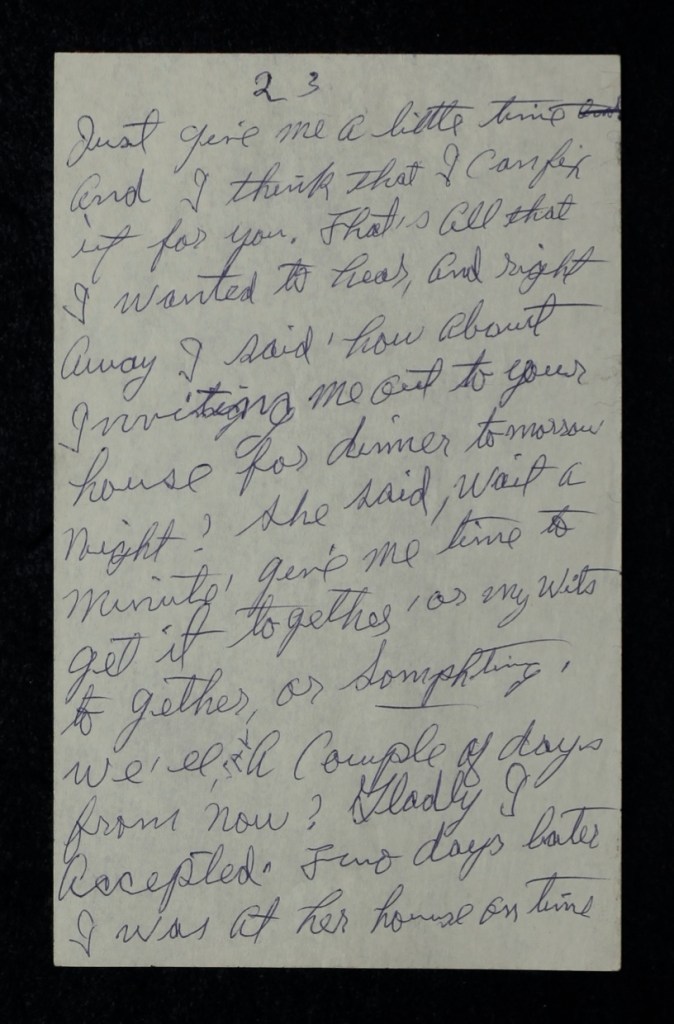 23
Just give me a little time
And I think that I Can fix
it for you. That's All that
I wanted to hear, And right
Away I said 'how About
Inviting me out to your
house for dinner tomorrow
Night? She said, wait a
minute' give me time to
get it together' or my wits
to gether, or Somphting,
we'ell, A Couple of days
from now? Gladly I
Accepted. Two days later
I was At her house on time